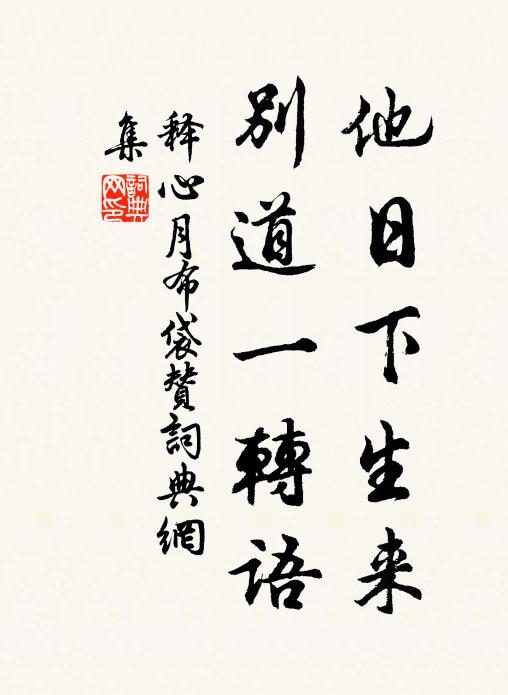 他日下生来
别道一轉语
释心月布袋赞詞典網
集
詞典网印